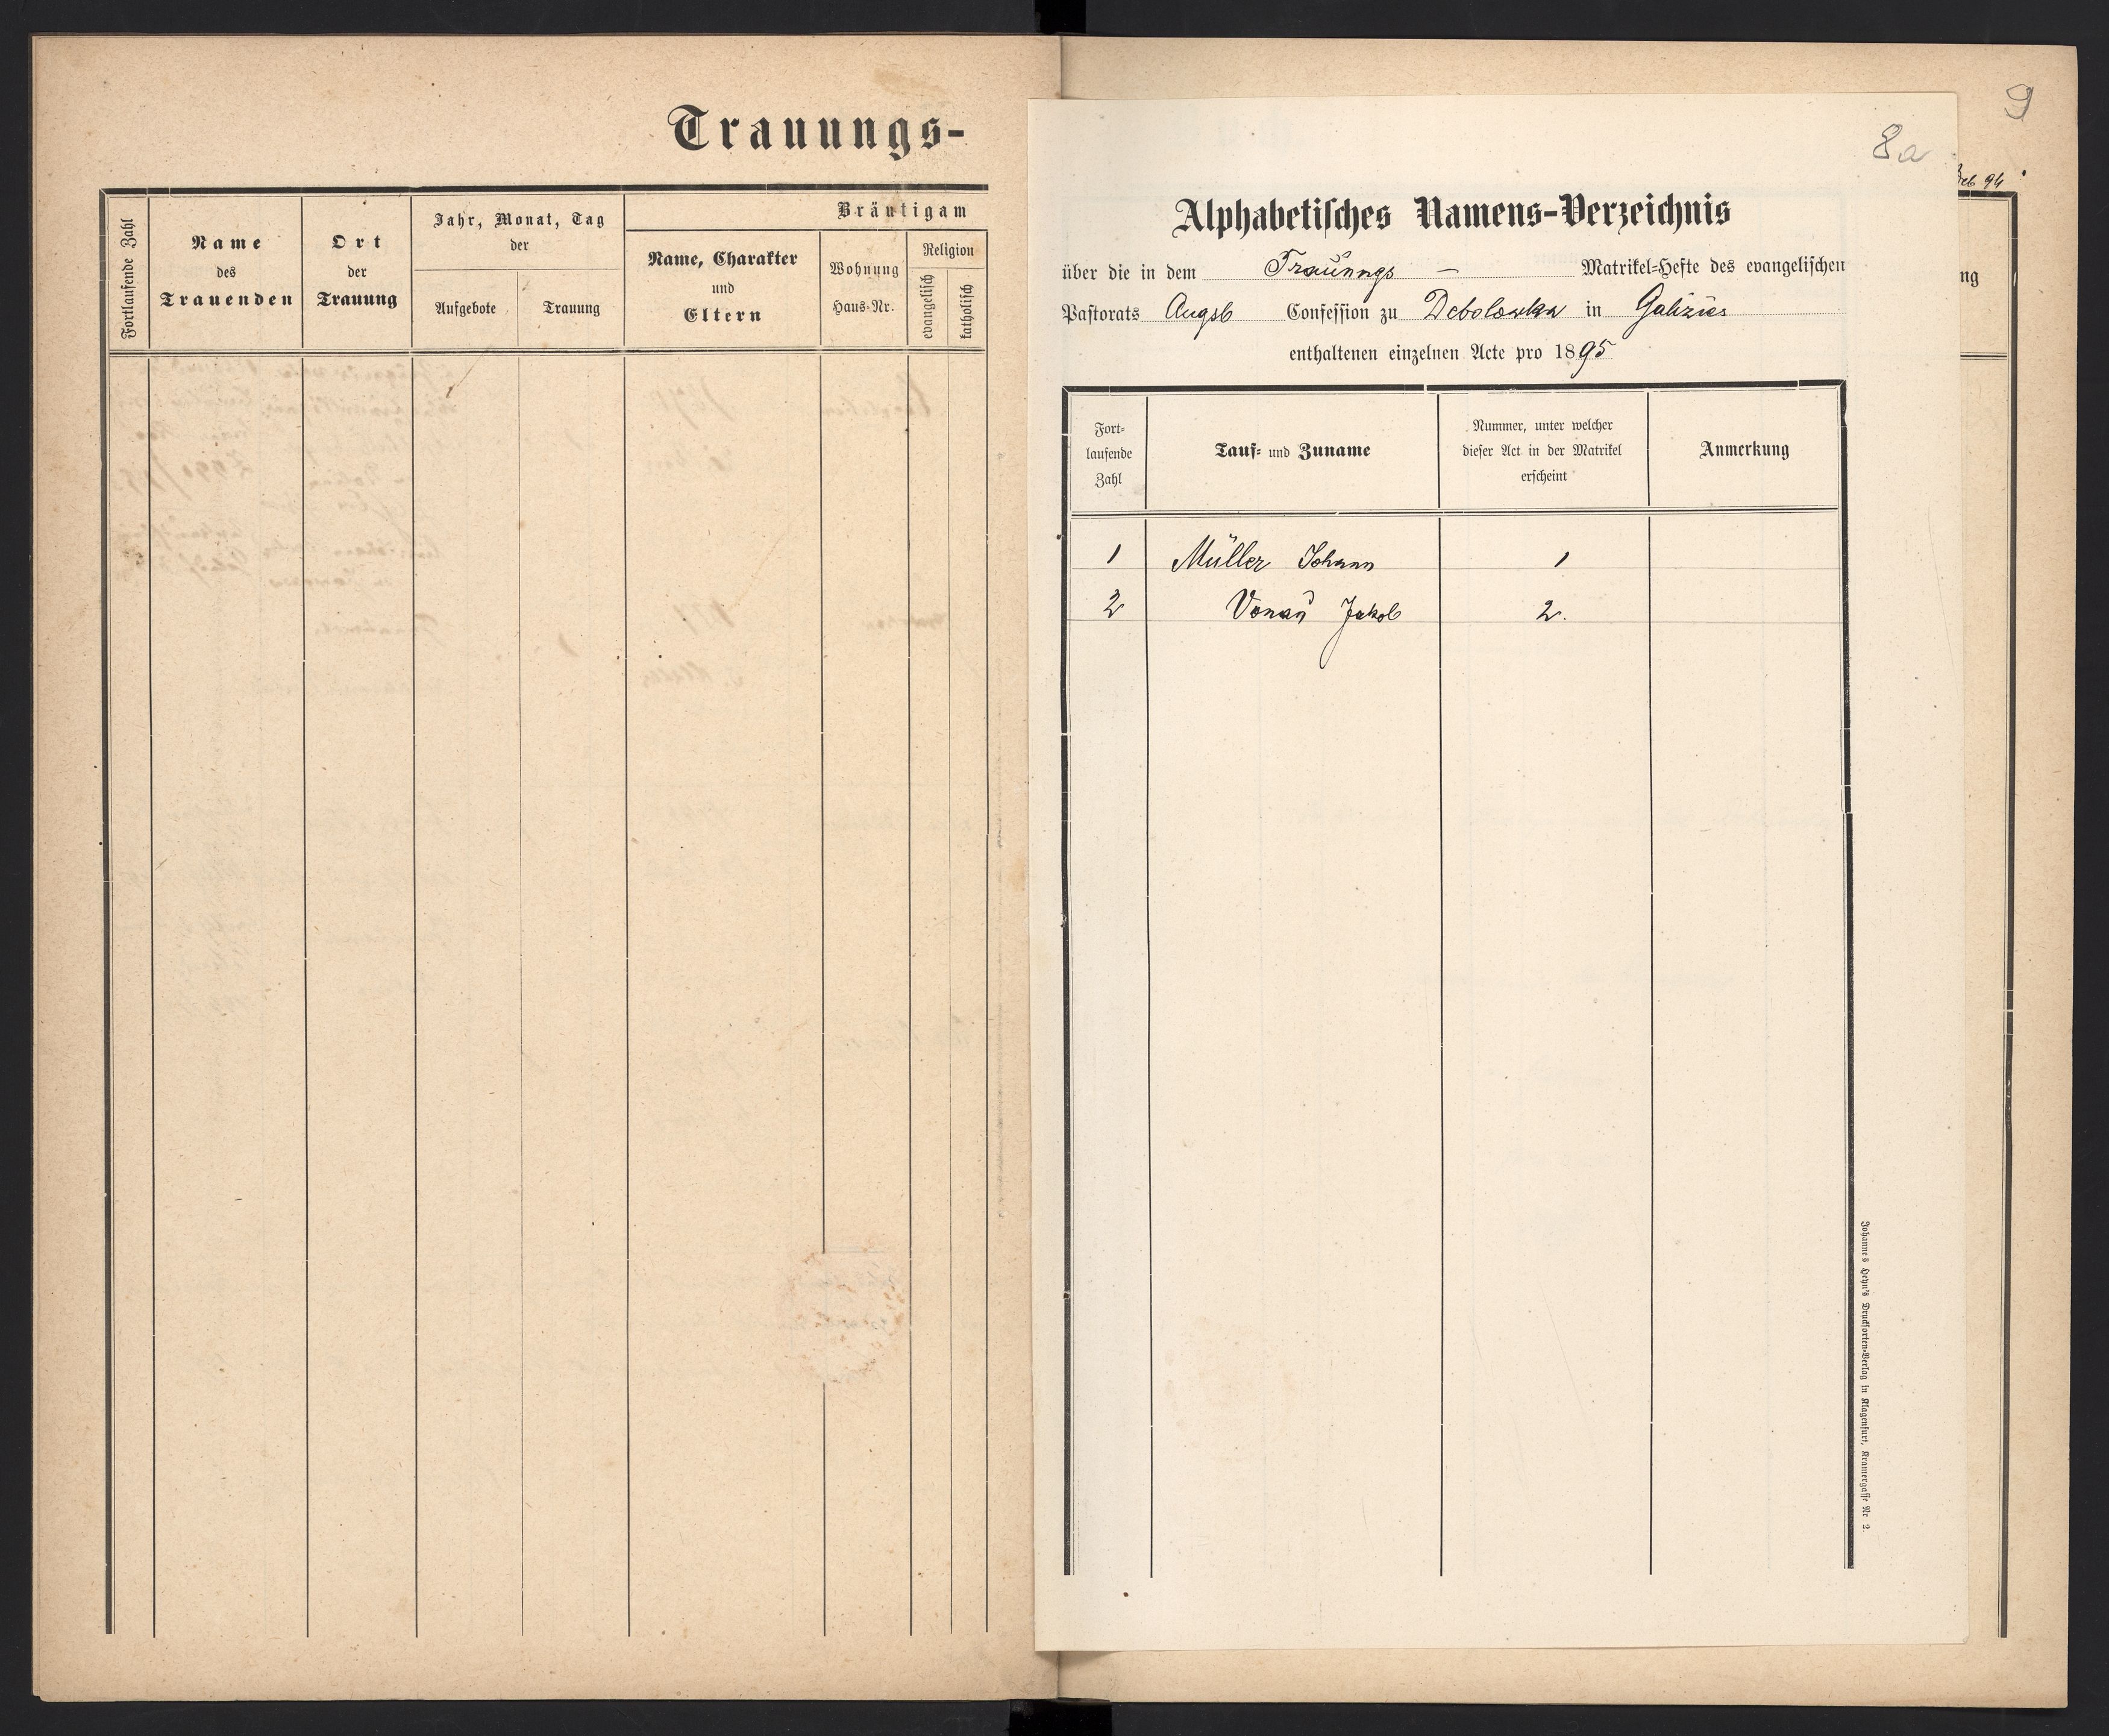 Trauungs-
Fortlaufende Zahl
Name
des
Trauenden
Ort
der
Trauung
Jahr, Monat, Tag
der
Aufgebote
Trauung
Bräutigam
Name, Charakter
und
Eltern
Wohnung
Haus-Nr.
Religion
evangelisch
katholisch
9
8a
94
ng
Alphabetisches Namens-Verzeichnis
über die in dem Trauungs - Matrikel-Hefte des evangelischen
Pastorats Augsb Confession zu Debolowka in Galizies
enthaltenen einzelnen Acte pro 1895
Fort-
laufende
Zahl
Tauf- und Zuname
Nummer, unter welcher
dieser Act in der Matrikel
erscheint
Anmerkung
1 Müller Johann 1
2 Vonau Jakob 2.
Johannes Heyn's Drucksorten-Verlag in Klagenfurt, Kramergasse Nr 2.